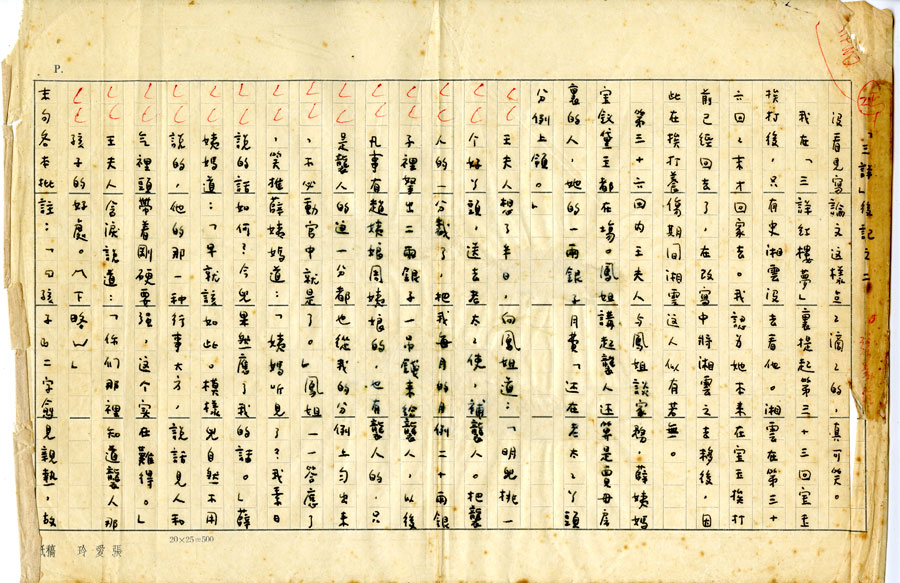 P.
「三詳」後記之二
沒看見寫論文這樣巴巴滴滴的,真可笑。
我在「三詳紅樓夢」裏提起第三十三回寶玉
挨打後,只有史湘雲沒去看他。湘雲在第三十
六回回末才回家去。我認為她本來在寶玉挨打
前已經回去了,在改寫中將湘雲之去移後,因
此在挨打養傷期間湘雲這人似有若無。
第三十六回內王夫人與鳳姐談家務,薛姨媽
寶釵黛玉都在場。鳳姐講起襲人還算是賈母房
裏的人,她的一兩銀子月費「還在老太太丫頭
分例上領。」
王夫人想了半日,向鳳姐道:「明兒挑一
个好丫頭,送去老太太使,補襲人。把襲
人的一分裁了,把我每月的月例二十兩銀
子裡拏出二兩銀子一吊錢來給襲人,以後
凡事有趙姨娘周姨娘的,也有襲人的,只
是襲人的這一分都也從我的分例上勻出來
,不必動官中就是了。」鳳姐一一答應了
,笑推薛姨媽道:「姨媽听見了?我素日
說的話如何?今兒果然應了我的話。」薛
姨媽道:「早就該如此。模樣兒自然不用
說的,他的那一种行事大方,說話見人和
氣裡頭帶着剛硬要強,這个實在難得。」
王夫人含淚說道:「你們那裡知道襲人那
孩子的好處。(下略)」
末句各本批註:「『孩子』二字愈見親熱,故
20×25=500
張愛玲 稿紙